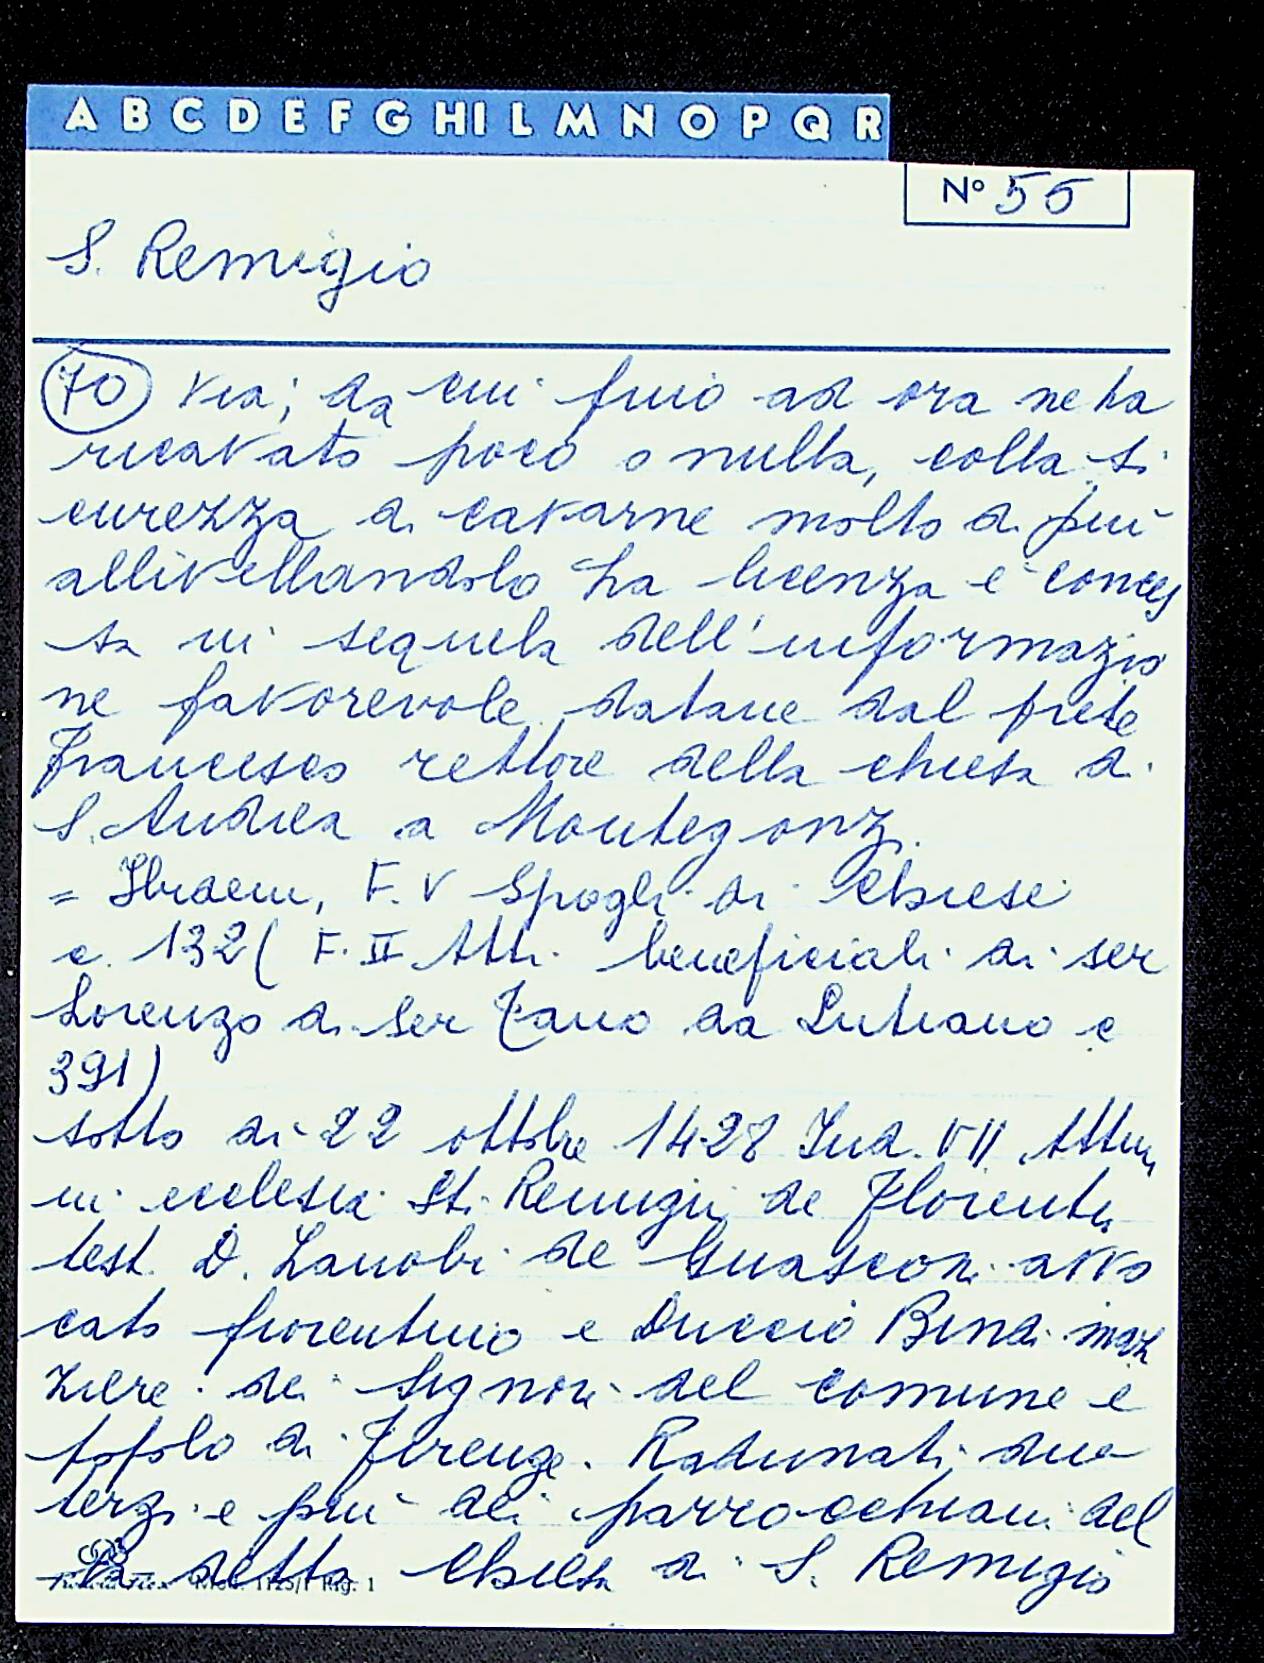 A B C D E F G H I L M N O P Q R
N° 55
S. Remigio
70 via; da cui fino ad ora ne ha
ricavato poco o nulla, colla si
curezza di cavarne molto di più
allivellandolo ha licenza è conces
sa in sequela dell'informazio
ne favorevole datane dal prete
Francesco rettore della chiesa di
S. Andrea a Montegonzi.
= Ibidem, F. V Spogli di Chiese
c. 132 ( F. II Atti beneficiali di ser
Lorenzo di ser Tano da Lutiano c
391)
sotto di 22 ottobre 1428 Ind. VII Actum
in ecclesia Sti Remigii de Florentia
test. D. Zanobi de Guasconi avvo
cato fiorentino e Duccio Bindi maz
ziere dei Signori del comune e
popolo di Firenze. Radunati due
terzi e più dei parrocchiani del
la detta Chiesa di S. Remigio